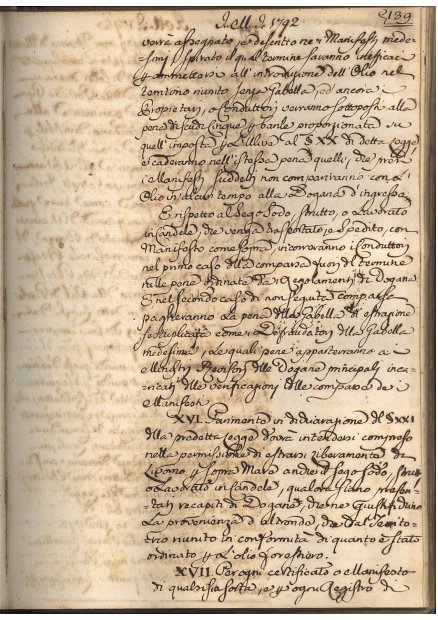 1792
139
verrà assegnato, e descritto nei Manifesti mede-
simi, spirato il qual termine saranno inefficaci
p ammettersi all'introduzione dell'Olio nel
territorio riunito senza Gabella, ed ancora i
Propietari, o Conduttori verranno sottoposti alla
pena di scudi cinque p barile proporzionata su
quell'imposta p l'Ulive al § XX di detta Legge
e caderanno nell'istessa pena quelli, che
i Manifesti suddetti non compariranno con l'
Olio in alcun tempo alla Dogana d'ingresso.
E rispetto al Sego Sodo, strutto, o lavorato
in candele che venga trasportato, e spedito, con
Manifesto come sopra, incorreranno i Conduttori
nel primo caso della comparsa fuori del termine
nelle pene ordinate da Regolamenti di Dogana
E nel secondo caso di non seguita comparsa
pagheranno la pena della Gabella di estrazione
sestuplicata come Defraudatori della Gabella
medesima, le quali pene apparterranno a
Ministri Revisori delle Dogane principali inca-
ricati delle verificazioni delle comparse de i
Manifesti
XVI. Parimente in dichiarazione del § XXI
della predetta Legge dovrà intendersi compreso
nella permissione di estrarsi liberamente da
Livorno p Sopra Mare anche il Sego Sodo, strutto
o lavorato in candele, qualora siano presen-
tati recapiti di Dogana, che ne giustifichino
la provenienza d'altronde, che dal Territo-
rio riunito in conformità di quanto è stato
ordinato p l'olio forestiero.
XVII. Per ogni certificato o Manifesto
di qualsisia sorta, e p ogni Registro di